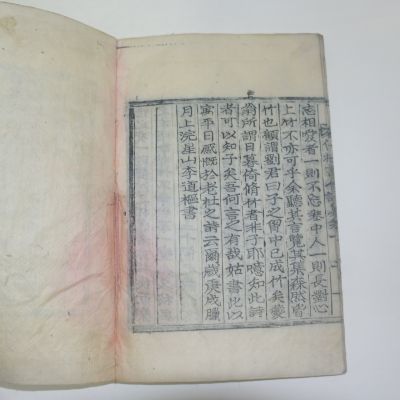 忘相愛者一則不忘塾中人一則長對心
上竹不亦可乎余聽其言覽其葉森然皆
竹也顧謂劉君曰子之胷中已成竹矣夔
翁所謂日暮倚脩竹者非子耶噫如此詩
者可以知子矣吾何言之有哉姑書此以
寓平日感慨於老杜之詩云爾歲庚戌臘
月上浣星山李道樞書